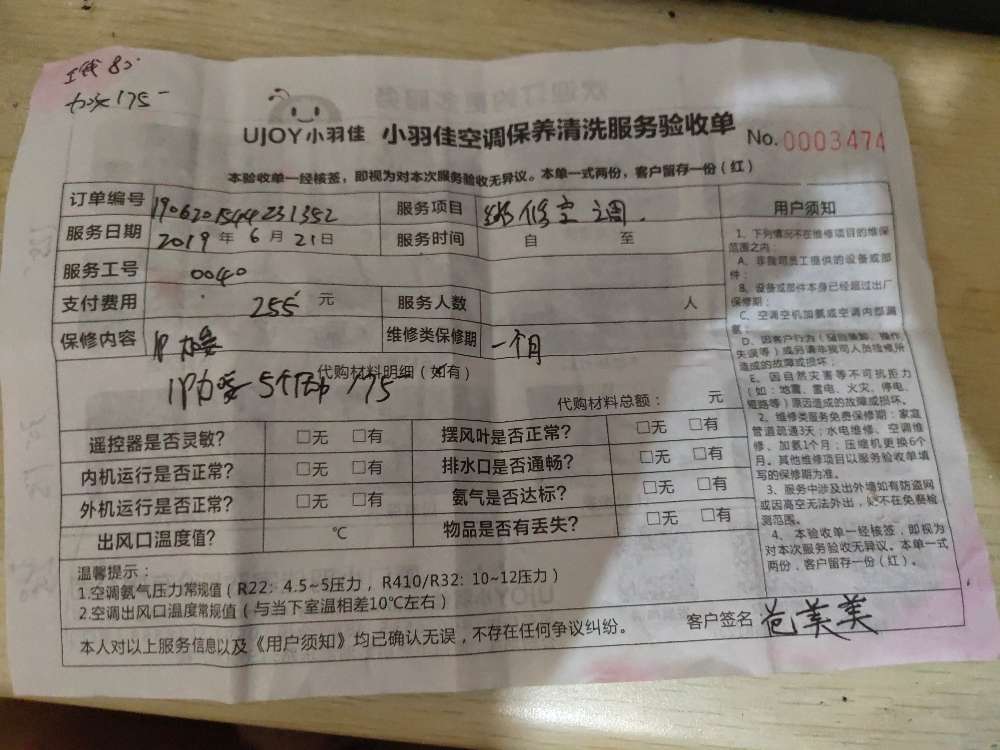 工钱 80
加冰 175-
UJOY小羽佳 小羽佳空调保养清洗服务验收单 No. 0003474
本验收单一经核签，即视为对本次服务验收无异议。本单一式两份，客户留存一份（红）
订单编号 190620154423 1352 服务项目 维修空调.
服务日期 2019 年 6 月 21 日 服务时间 自 至
服务工号 0040
支付费用 255 元 服务人数 人
保修内容 维修类保修期 一个月
代购材料明细（如有）
175-
代购材料总额： 元
遥控器是否灵敏? □无 □有 摆风叶是否正常? □无 □有
内机运行是否正常? □无 □有 排水口是否通畅? □无 □有
外机运行是否正常? □无 □有 氨气是否达标? □无 □有
出风口温度值? ℃ 物品是否有丢失? □无 □有
温馨提示：
1.空调氨气压力常规值（R22：4.5~5压力，R410/R32：10~12压力）
2.空调出风口温度常规值（与当下室温相差10℃左右）
本人对以上服务信息以及《用户须知》均已确认无误，不存在任何争议纠纷。 客户签名 范美美
用户须知
1、下列情况不在维修项目的维保
范围之内：
A、非我司员工提供的设备或部
件；
B、设备或部件本身已经超过出厂
保修期；
C、空调空机加氨或空调内部漏
氨；
D、因客户行为（
失误等）或另请非我司人员维修所
造成的故障或损坏；
E、因自然灾害等不可抗拒力
（如：地震、雷电、火灾、停电、
短路等）原因造成的故障或损坏。
2、维修类服务免费保修期：家庭
管道疏通3天；水电维修、空调维
修、加氨1个月；压缩机更换6个
月。其他维修项目以服务验收单填
写的保修期为准。
3、服务中涉及出外墙如有防盗网
或因高空无法外出，处不在免费检
测范围。
4、本验收单一经核签，即视为
对本次服务验收无异议。本单一式
两份，客户留存一份（红）。